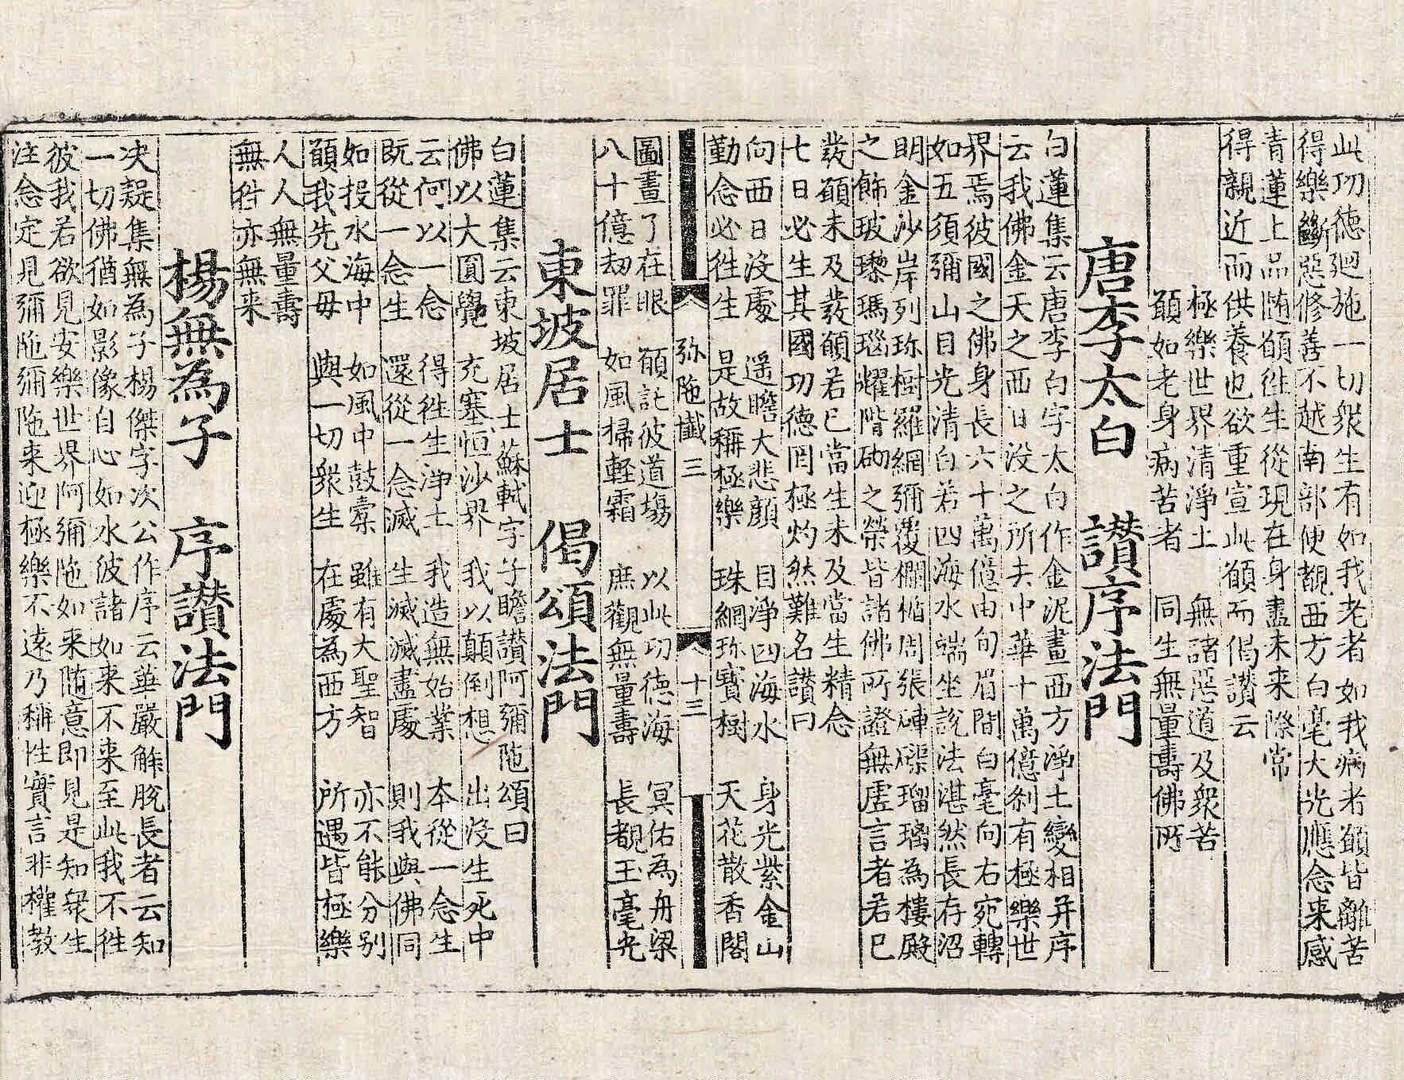 此功德廻施一切衆生有如我老者如我病者願皆離苦
得樂斷惡修善不越南部便覩西方白毫大光應念来感
青蓮上品随願徃生從現在身盡未来際常
得親近而供養也欲重宣此願而偈讃云
極樂世界清淨土　無諸惡道及衆苦
願如老身病苦者　同生無量壽佛所
唐李太白　讃序法門
白蓮集云唐李白字太白作金泥畫西方淨土變相并序
云我佛金天之西日没之所去中華十萬億刹有極樂世
界焉彼國之佛身長六十萬億由旬眉間白毫向右宛轉
如五須彌山目光清白若四海水端坐說法湛然長存沼
明金沙岸列珎樹羅網彌覆欄楯周張硨磲瑠璃為樓殿
之飾玻瓈瑪瑙耀階砌之榮皆諸佛所證無虚言者若已
發願未及發願若已當生未及當生精念
七日必生其國功德罔極灼然難名讃曰
向西日没處　遥瞻大悲顔　目淨四海水　身光紫金山
勤念必徃生　是故稱極樂　珠網珎寳樹　天花散香閣
弥陁懴三　十三
圖畫了在眼　願託彼道場　以此功德海　冥佑為舟梁
八十億劫罪　如風掃輕霜　庶觀無量壽　長覩玉毫光
東坡居士　偈頌法門
白蓮集云東坡居士蘇軾字子瞻讃阿彌陁頌曰
佛以大圓覺　充塞恒沙界　我以顛倒想　出没生死中
云何以一念　得徃生淨土　我造無始業　本從一念生
既從一念生　還從一念滅　生滅滅盡處　則我與佛同
如投水海中　如風中鼓橐　雖有大聖智　亦不能分别
願我先父母　與一切衆生　在處為西方　所遇皆極樂
人人無量壽
無徃亦無来
楊無為子　序讃法門
决疑集無為子楊傑字次公作序云華嚴解脫長者云知
一切佛猶如影像自心如水彼諸如来不来至此我不徃
彼我若欲見安樂世界阿彌陁如来随意即見是知衆生
注念定見彌陁彌陁来迎極樂不遠乃稱性實言非權教